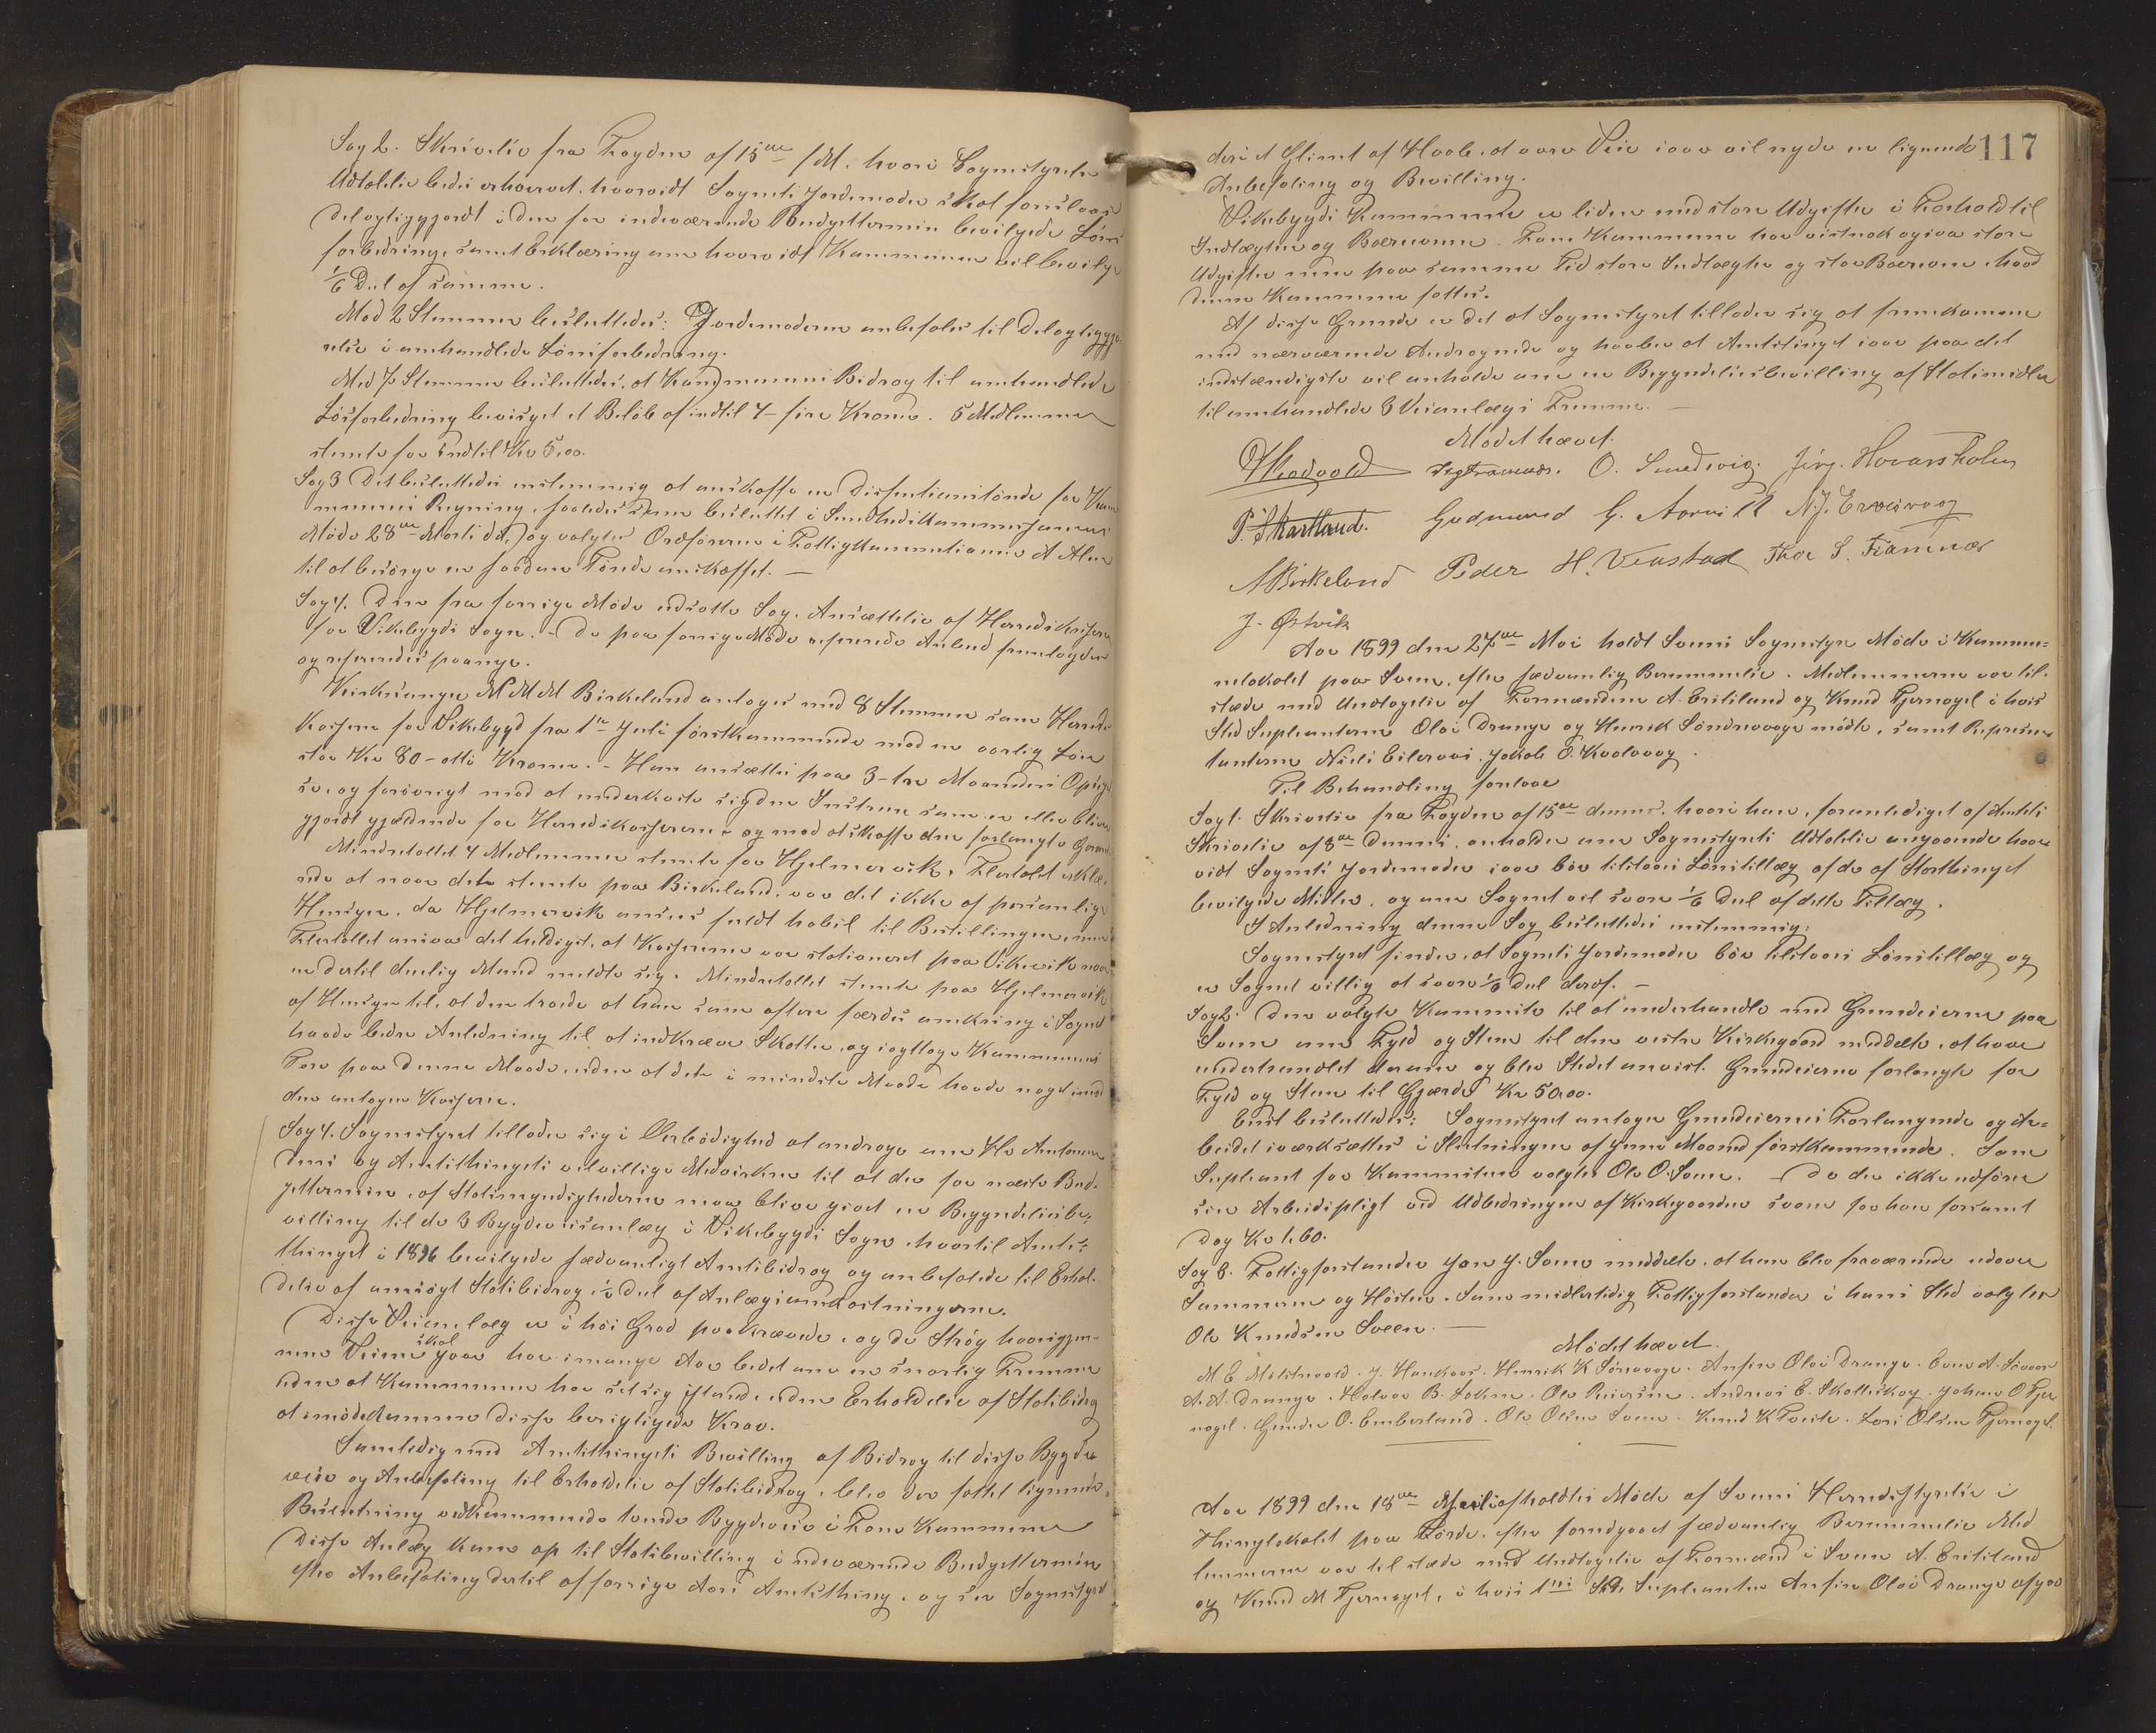 Sag 2. Skrivelse fra Fogden af 15de f. M. hvori Sognestyrets
Udtalelse bedes erhvervet, hvorvidt Sognets Jordemoder skal foreslaaes
delagtiggjordt i den for indeværende Budgettermin bevilgede Løns-
forbedring, samt Erklæring om hvorvidt Kommunen vil bevilge
1/6 Del af samme.
Med 2 Stemmer besluttedes: Jordemoderen anbefales til Delagtiggjø-
relse i omhandlede Lønsforbedring.
Med 7 Stemmer besluttedes, at Kommunens Bidrag til omhandlede
Lønsforbedring bevilges et Beløb af indtil 4 - fire Kroner. 5 Medlemmer
stemte for indtil Kr 5,00.
Sag 3 Det besluttedes enstemmig at anskaffe en Disfentionstønde for Kom-
munens Regning, saaledes som besluttet i Sundhedskommissionens
Møde 28de Marts d. A., og valgtes Ordføreren i Fattigkommissionen A Alne
til at besørge en saadan Tønde anskaffet. —
Sag 4. Den fra forrige Møde udsatte Sag, Ansættelse af Herredskasserer
for Vikebygds Sogn. - De paa forrige Møde refererede Anbud fremlagdes
og refereredes paanye.
Kirkesanger M M M Birkeland antoges med 8 Stemmer som Herreds-
kasserer for Vikebygd fra 1ste Juli førstkommende mod en aarlig Løn
stor Kr 80 - otti Kroner. - Han ansættes paa 3 - tre Maaneders Opsigel-
se, og forøvrigt mod at underkaste sig den Instrux som er eller bliver
gjordt gjældende for Herredskassereren - og mod at skaffe den forlangte Garanti
Mindretallet 4 Medlemmer stemte for Hjelmervik. Flertallet erklæ-
rede at naar dette stemte paa Birkeland, var det ikke af personlige
Hensyn, da Hjelmervik ansees fuldt habil til Bestillingen, men
Flertallet ansaa det heldigst, at Kassereren var stationeret paa Vikevik naar
en dertil duelig Mand meldte sig. Mindretallet stemte paa Hjelmervik
af Hensyn til, at den troede at han som oftere færdes omkring i Sognet
havde bedre Anledning til at indkræve Skatter, og iagttage Kommunens
Tarv paa denne Maade, uden at dette i mindste Maade havde noget imod
den antagne Kasserer.
Sag 4. Sognestyret tillader sig i Ærbødighed at andrage om Hr Amtman-
dens og Amtsthingets velvillige Medvirken til at der for næste Bud-
gettermin, af Statsmyndighederne maa blive givet en Begyndelsesbe-
villing til de 3 Bygdeveisanlæg i Vikebygds Sogn hvortil Amts-
thinget i 1896 bevilgede sædvanligt Amtsbidrag og anbefalede til Erhol-
delse af ansøgt Statsbidrag 1/2 Del af Anlægsomkostningerne.
Disse Veianlæg er i høi Grad paakrævede, og de Strøg hvorigjen-
nem Veiene skal gaa har i mange Aar bedet om en snarlig Fremme
uden at Kommunen har set sig istand, uden Erholdelse af Statsbidrag
at imødekomme disse berigtigede Krav.
Samtidig med Amtsthingets Bevilling af Bidrag til disse Bygde-
veie og Anbefaling til Erholdelse af Statsbidrag, blev der fattet lignende
Beslutning vedkommende tvende Bygdeveie i Fane Kommune
Disse Anlæg kom op til Statsbevilling i indeværende Budgettermin
efter Anbefaling dertil af forrige Aars Amtsthing, og ser Sognestyret
117
deri et Glimt af Haab, at vore Veie iaar vil nyde en lignende
Anbefaling og Bevilling.
Vikebygds Kommune er liden med store Udgifter i Forhold til
Indtægten og Bæreevnen. Fane Kommune har vistnok ogsaa store
Udgifter men paa samme Tid store Indtægter og stor Bæreevne hvad
denne Kommune fattes.
Af disse Grunde er det at Sognestyret tillader sig at fremkomme
med nærværende Andragende og haaber at Amtstinget iaar paa det
indstændigste vil anholde om en Begyndelsesbevilling af Statsmidler
til omhandlede 3 Veianlægs Fremme. —
Mødet hævet.
O. Smedsvig. Jørg. Hovarsholm
P. Skartland. Gudmund G. Aarvik N. J. Ervesvaag
M Birkeland Peder H. Venstad Thor S.
J. Østvik
Aar 1899 den 27de Mai holdt Sveens Sognestyre Møde i Kommu-
nelokalet paa Sveen, efter sædvanlig Berammelse. Medlemmerne var til-
stede med Undtagelse af Formændene A. Eritsland og Knud Tjernagel i hvis
Sted Suplianterne Olai Drange og Henrik Søndrevaage mødte, samt Repræsen-
tanterne Niels Eilersen, Jakob O. Kvalvaag.
Til Behandling forelaae
Sag 1. Skrivelse fra Fogden af 15de dennes, hvori han, foranlediget af Amtets
Skrivelse af 8de dennes, anholder om Sognestyrets Udtalelse angaaende hvor-
vidt Sognets Jordemoder iaar bør tilstaaes Lønstillæg af de af Storthinget
bevilgede Midler, og om Sognet vil svare 1/6 Del af dette Tillæg.
I Anledning denne Sag besluttedes enstemmig:
Sognestyret finder, at Sognets Jordemoder bør tilstaaes Lønstillæg og
er Sognet villig at svare 1/6 Del deraf. —
Sag 2. Den valgte Kommite til at underhandle med Grundeierne paa
Sveen om Fyld og Sten til den vestre Kirkegaard meddelte, at have
underhandlet derom og blev Stedet anvist. Grundeierne forlangte for
Fyld og Sten til Gjærde Kr 50.00.
Enst besluttedes: Sognestyret antager Grundeiernes Forlangende og Ar-
beidet iværksættes i Slutningen af Juni Maaned førstkommende. Som
Supleant for Kommiteen valgtes Ole O. Sveen. - De der ikke udfører
sin Arbeidspligt ved Udbedringen af Kirkegaarden svarer for hver forsømt
Dag Kr 1.60.
Sag 3. Fattigforstander Jon J. Sveen meddelte, at han blev fraværende udover
Sommeren og Høsten. Som midlertidig Fattigforstander i hans Sted valgtes
Ole Knudsen Sveen. —
Mødet hævet.
M E Mølstrevold. J. Haukaas. Henrik K Sørevaage. Anfin Olai Drange. Even A.
A. A. Drange. Halvor B. Økne. Ole Reiersen. Andreas E. Skolleskog. Johan O Tjer-
nagel. Gunder O. Emberland. Ole Olsen Sveen. Knud K Tveite. Lars Olsen Tjernagel.
Aar 1899 den 18de April afholdtes Møde af Sveens Herredsstyrelse i
Thinglokalet paa Førde, efter forudgaaet sædvanlig Berammelse. Med-
lemmerne var til stede med Undtagelse af Formænd i Sveen A. Eritsland
og Knud M Tjernagel, i hvis 1stes Sted Supleanten Anfin Olai Drange afgav